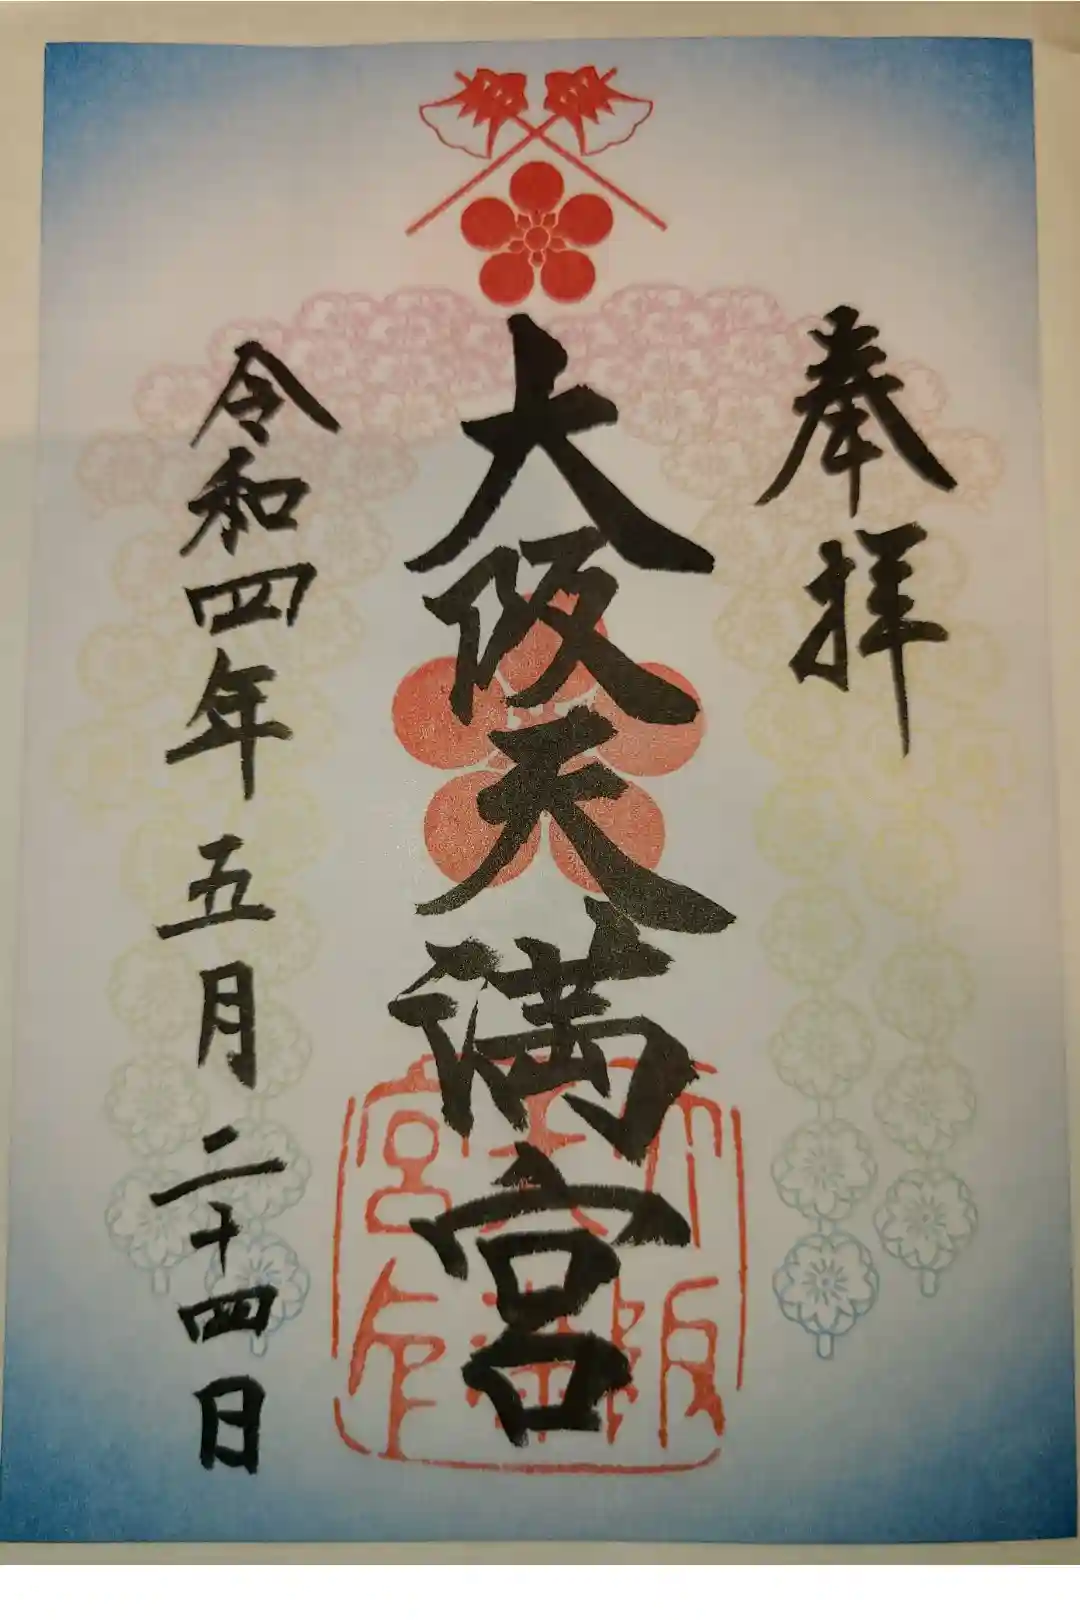 奉拝
大阪天満宮
令和四年五月二十四日